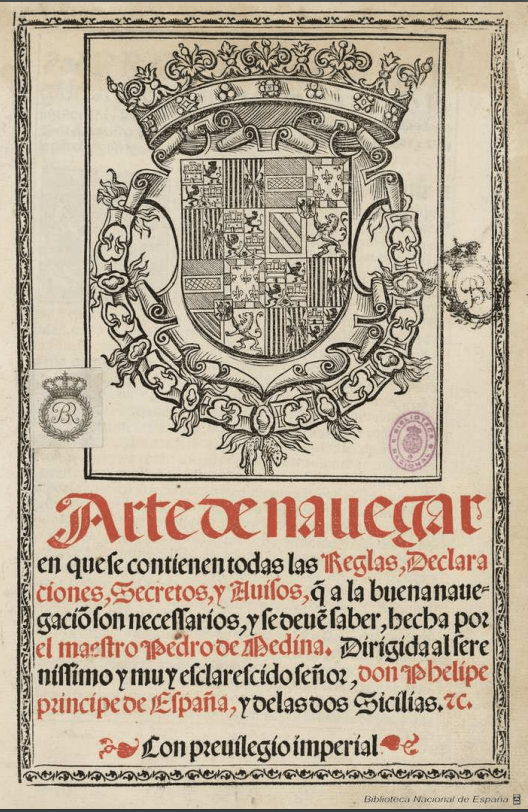 BR
BIBLIOTECA NACIONAL
Arte de nauegar
en que se contienen todas las Reglas, Declara
ciones, Secretos, y Auisos, q̃ a la buena naue-
gaciõ son necessarios, y se deuẽ saber, hecha por
el maestro Pedro de Medina. Dirigida al sere
nissimo y muy esclarescido señor, don Phelipe
principe de España, y delas dos Sicilias. ⁊c.
Con preuilegio imperial
Biblioteca Nacional de España